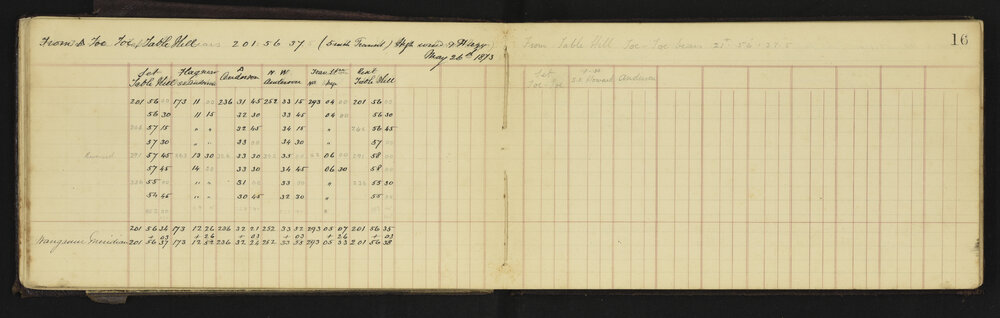 From Toe Toe Table Hill bears 201 . 56 37 (South Transit) High wind & Hazy
May 26th 1873
From Table Hill Toe Toe bears 21° 56' 37.5
16
Set Table Hill Anderson N W Anderson Rest Table Hill
Set Toe Toe Howard Anderson
201 56 00 173 11 00 236 31 45 252 33 15 293 04 00 201 56 00
56 30 11 15 32 30 33 45 04 00 56 30
57 15 " " 32 45 34 15 " 56 45
57 30 " " 33 00 34 30 " 57 00
57 45 13 30 33 30 35 00 06 00 58 00
57 45 14 33 30 34 45 06 30 58
55 00 " " 31 00 33 00 " 53 30
54 45 " " 30 45 32 30 " 55 00
201 56 34 173 12 26 236 32 21 252 33 52 293 05 07 201 56 35
+ 03 + 26 + 03 + 03 + 26 + 03
Meridian 201 56 37 173 12 52 236 32 24 252 33 55 293 05 33 201 56 38